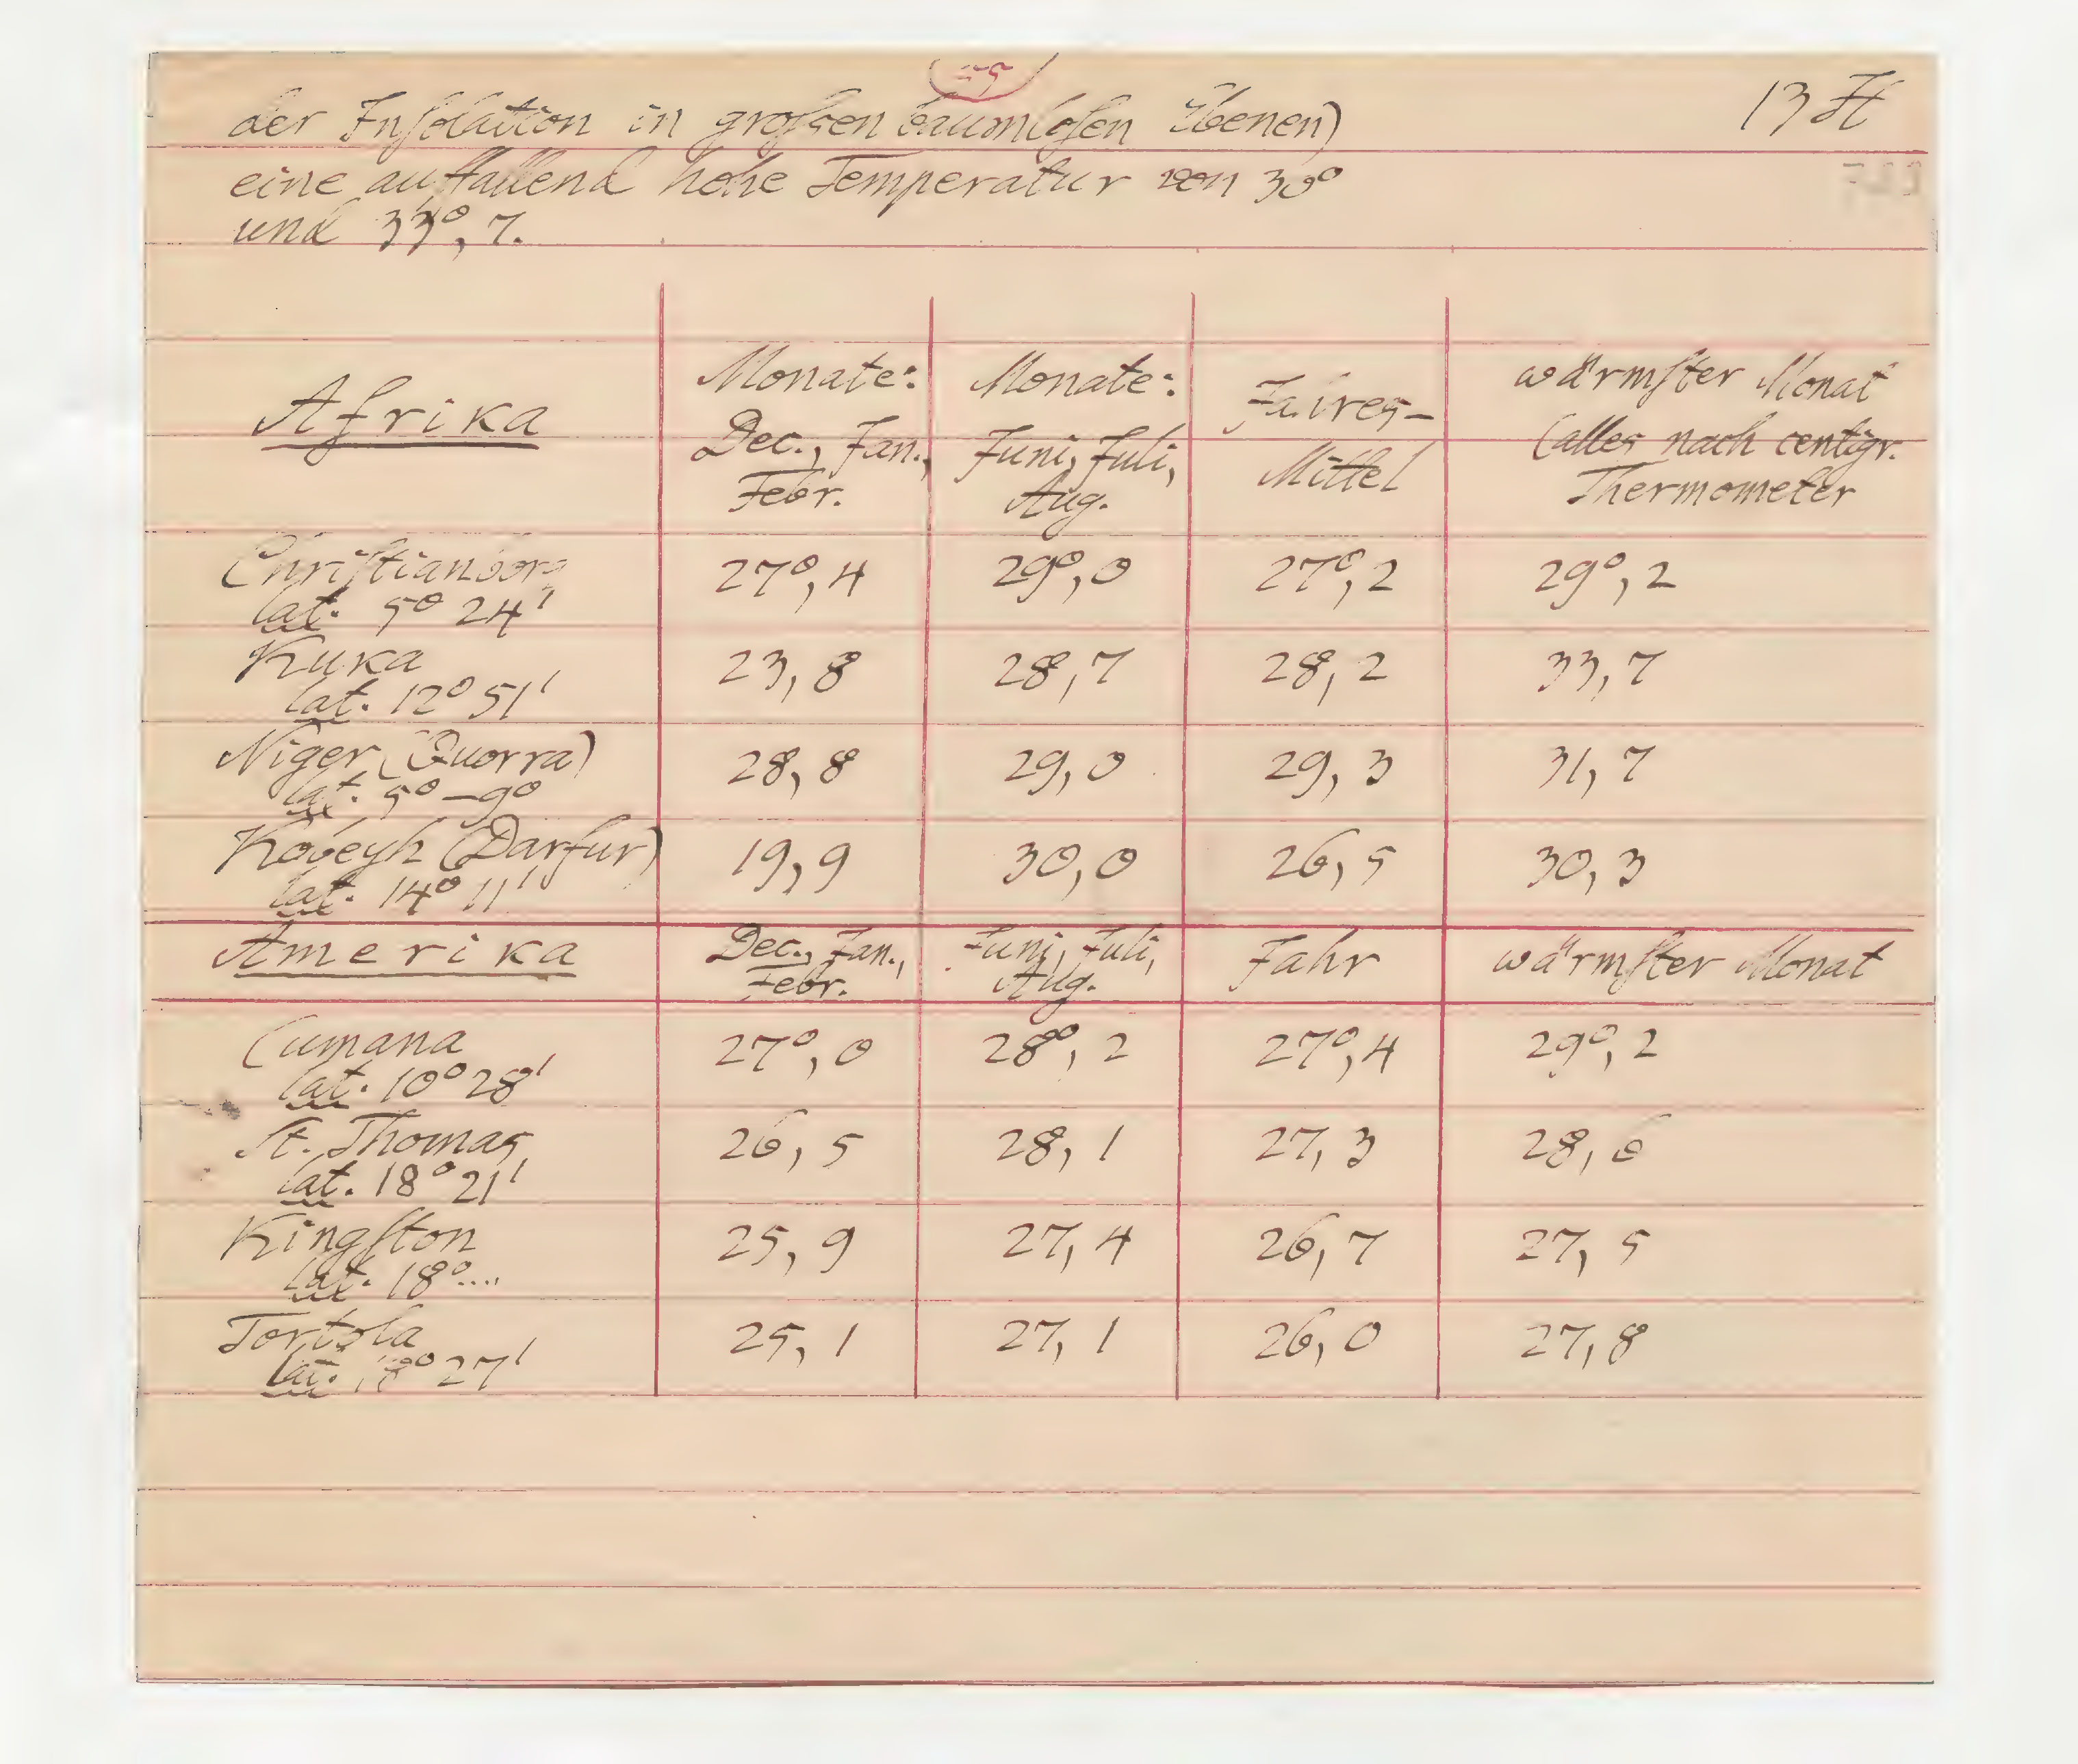 der Inſolation in groſsen baumloſen Ebenen)
13
eine auffallend hohe Temperatur von 30°
und 33°,7.
Afrika
Monate: Dec., Jan., Febr.
Monate: Juni, Juli, Aug.
Jahres-Mittel
wärmſter Monat (alles nach centigr. Thermometer
Chriſtianborg lat. 5° 24' 27°,4 29°,0 27°,2 29°,2
Kuka lat. 12° 51' 23,8 28,7 28,2 33,7
Niger (Quorra) lat. 5°-9° 28,8 29,0 29,3 31,7
Kobeyh (Darfur) lat. 14° 11' 19,9 30,0 26,5 30,3
Amerika Dec., Jan., Febr. Juni, Juli, Aug. Jahr wärmſter Monat
Cumana lat. 10° 28' 27°,0 28°,2 27°,4 29°,2
St. Thomas lat. 18° 21' 26,5 28,1 27,3 28,6
Kingſton lat. 18°.... 25,9 27,4 26,7 27,5
Tortola lat. 18° 27' 25,1 27,1 26,0 27,8